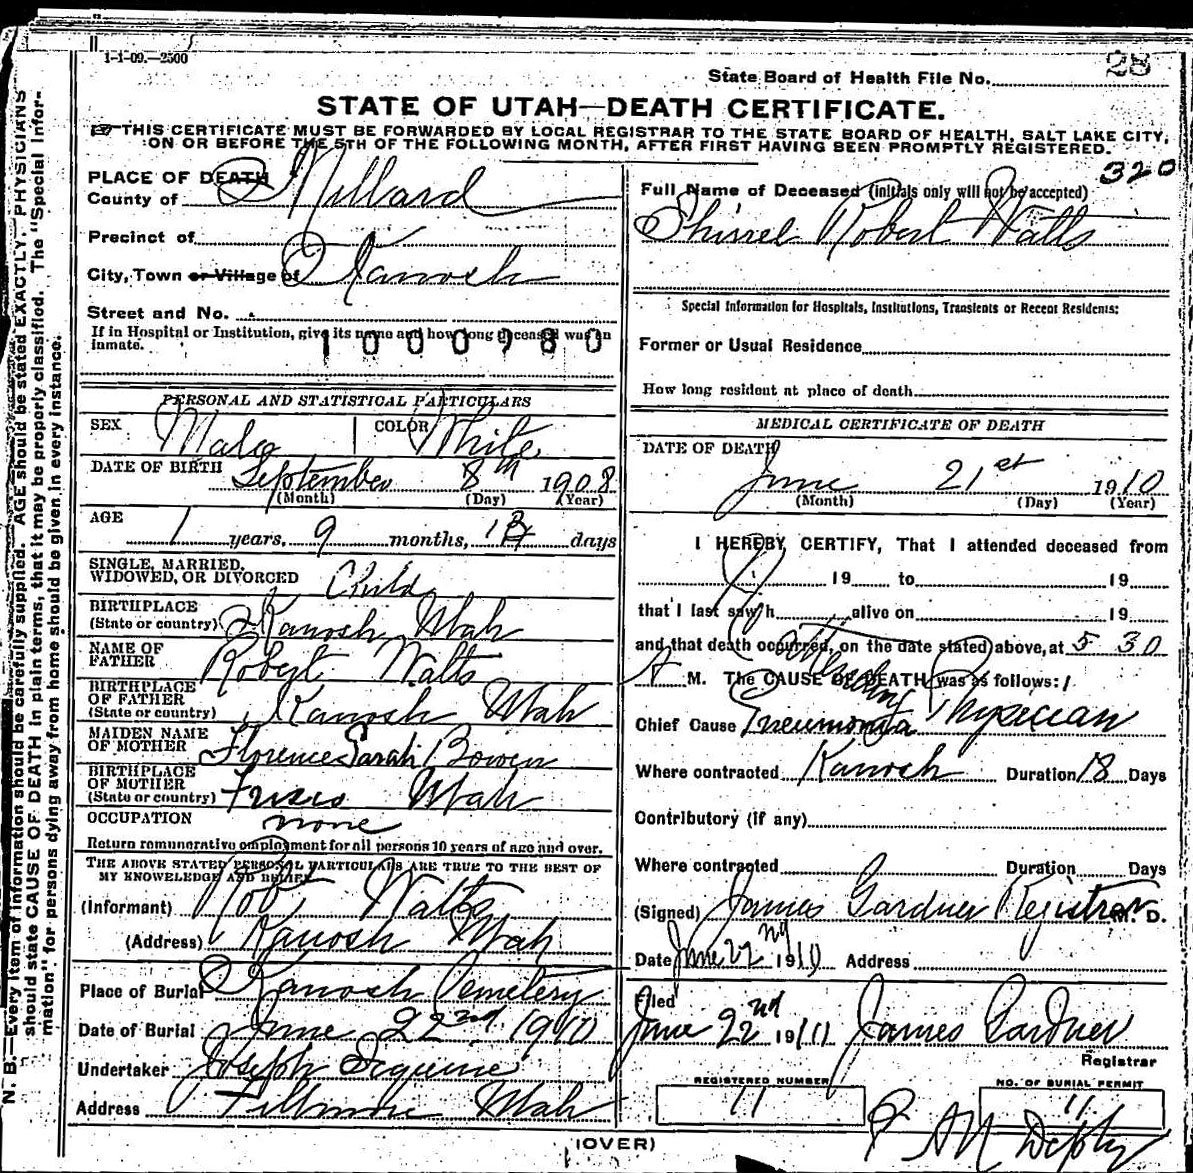 1-1-09.—2500
28
State Board of Health File No.
STATE OF UTAH—DEATH CERTIFICATE.
THIS CERTIFICATE MUST BE FORWARDED BY LOCAL REGISTRAR TO THE STATE BOARD OF HEALTH, SALT LAKE CITY,
ON OR BEFORE THE 5TH OF THE FOLLOWING MONTH, AFTER FIRST HAVING BEEN PROMPTLY REGISTERED.
320
PLACE OF DEATH
County of Millard
Precinct of
City, Town or Village of Kanosh
Street and No.
If in Hospital or Institution, give its name and how long deceased was an
inmate.
1000980
PERSONAL AND STATISTICAL PARTICULARS
SEX Male COLOR White
DATE OF BIRTH September 8th 1908
(Month) (Day) (Year)
AGE 1 years, 9 months, 13 days
SINGLE, MARRIED,
WIDOWED, OR DIVORCED Child
BIRTHPLACE
(State or country) Kanosh Utah
NAME OF
FATHER Robert Watts
BIRTHPLACE
OF FATHER
(State or country) Kanosh Utah
MAIDEN NAME
OF MOTHER Florence Sarah Bowen
BIRTHPLACE
OF MOTHER
(State or country) Frisco Utah
OCCUPATION none
Return remunerative employment for all persons 10 years of age and over.
THE ABOVE STATED PERSONAL PARTICULARS ARE TRUE TO THE BEST OF
MY KNOWELEDGE AND BELIEF
(Informant) Robt Watts
(Address) Kanosh Utah
Place of Burial Kanosh Cemetery
Date of Burial June 22nd 1910
Undertaker Joseph
Address Fillmore Utah
Full Name of Deceased (initials only will not be accepted)
Shirrel Robert Watts
Special Information for Hospitals, Institutions, Transients or Recent Residents:
Former or Usual Residence
How long resident at place of death
MEDICAL CERTIFICATE OF DEATH
DATE OF DEATH
June 21st 1910
(Month) (Day) (Year)
I HEREBY CERTIFY, That I attended deceased from
19 to 19
that I last saw h alive on 19
and that death occurred, on the date stated above, at 5 30
A M. The CAUSE OF DEATH was as follows:
Chief Cause Pneumonia Physician
Where contracted Kanosh Duration 18 Days
Contributory (if any)
Where contracted Duration Days
(Signed) James Gardner Registrar M. D.
Date June 22nd 1910 Address
Filed
June 22nd 1911 James Gardner
Registrar
REGISTERED NUMBER
11
NO. OF BURIAL PERMIT
11
(OVER)
N. B.—Every item of information should be carefully supplied. AGE should be stated EXACTLY. PHYSICIANS
should state CAUSE OF DEATH in plain terms, that it may be properly classified. The "Special Infor-
mation" for persons dying away from home should be given in every instance.